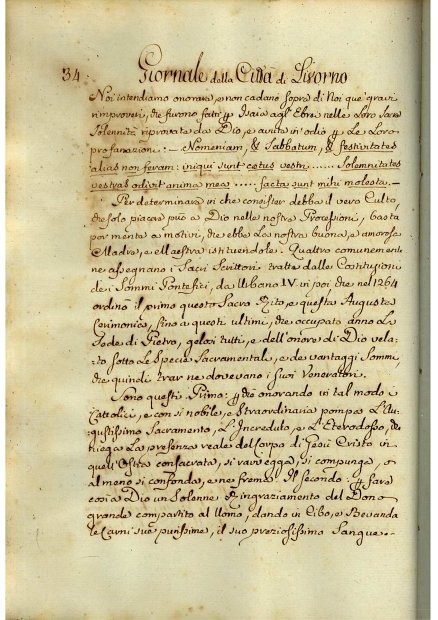 34 Giornale della Città di Livorno
Noi intendiamo onorare, e non cadano sopra di Noi que' gravi
rimproveri, che furono fatti p Isaia agl' Ebrei nelle Loro Sacre
Solennità riprovate da Dio, e avute in odio p Le Loro
profanazioni: – Nomeniam, & Sabbatum, & festivitates
alias non feram: iniqui sunt cœtus vestri ...... Solemnitates
vestras odivit anima mea ..... facta sunt mihi molesta. –
Per determinarci in che consister debba il vero Culto,
che solo piacer può a Dio nelle nostre Processioni, basta
por mente a motivi, che ebbe La nostra buona, e amorosa
Madre, e Maestra istituendole. Quattro comunemen-
ne assegnano i Sacri Scrittori tratti dalle Costituzioni
de i Sommi Pontefici, da Urbano IV. in poi che nel 1264
ordinò il primo questo Sacro Rito, e questa Augusta
Cerimonia, fino a questi ultimi, che occupato anno La
Sede di Pietro, gelosi tutti, e dell'onore di Dio vela-
to sotto Le Specie Sacramentali, e de vantaggi Sommi,
che quindi trar ne dovevano i suoi Veneratori.
Sono questi Primo: p che onorando in tal modo i
Cattolici, e con sì nobile, e straordinaria pompa L'Au-
gustissimo Sacramento, L'Incredulo, e L'Eterodosso, che
niega La presenza reale del Corpo di Gesù Cristo in
quell'Ostia consacrata, si ravvegga, si compunga, o
almeno si confonda, e ne frema. Il secondo: p fare
così a Dio un Solenne Ringraziamento del Dono
grande compartito all Uomo, dando in Cibo, e Bevanda
le Carni sue purissime, il suo preziosissimo Sangue. –